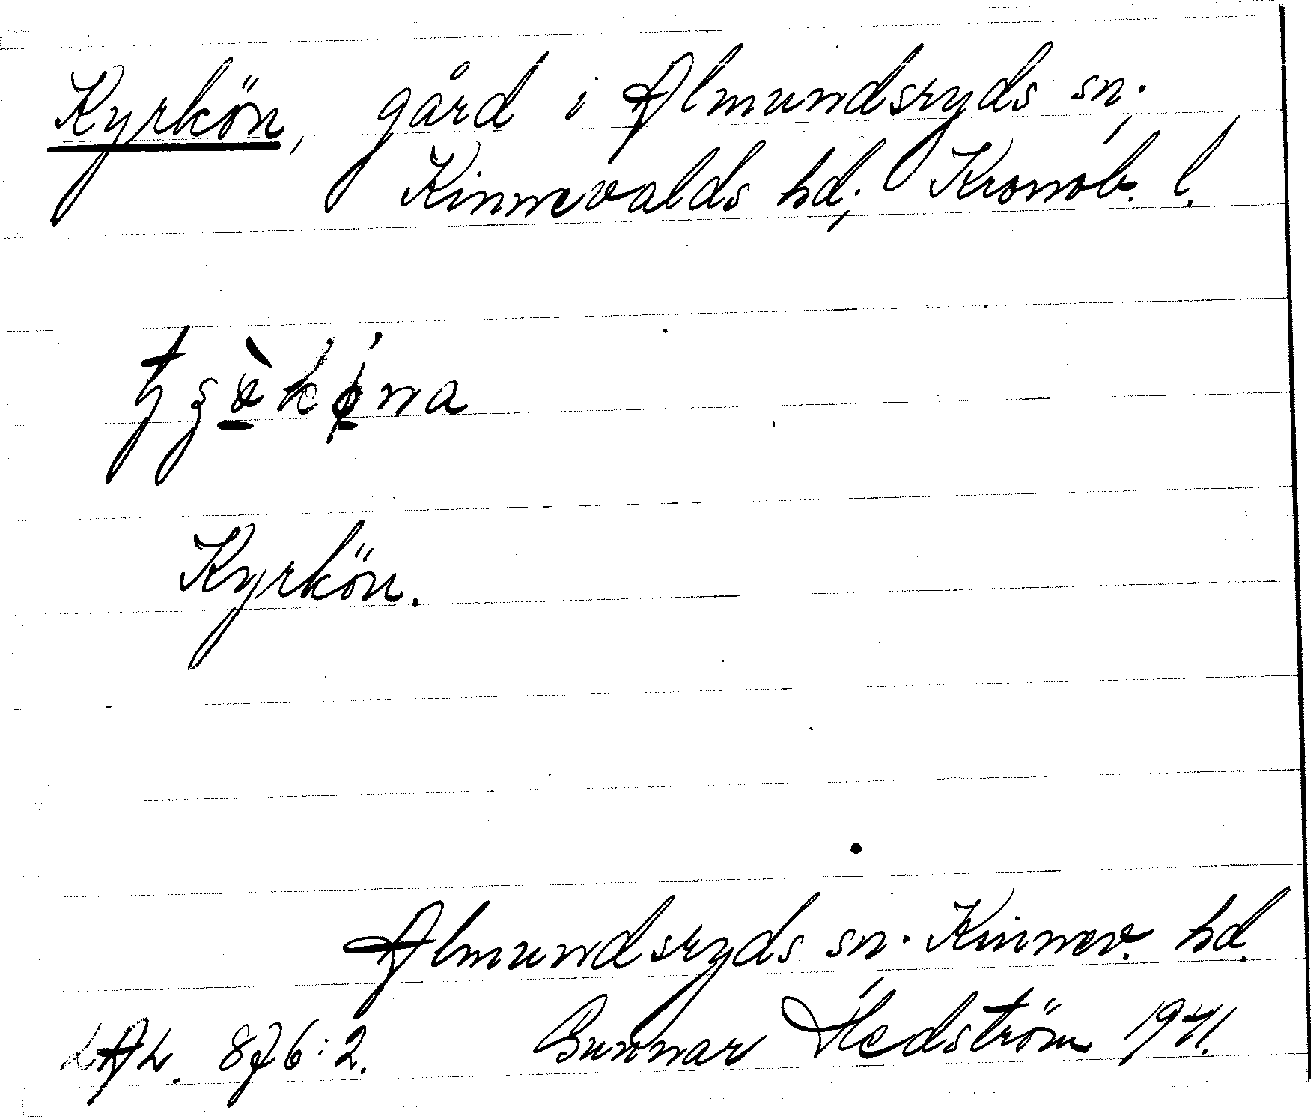 Kyrkön, gård i Almundsryds sn.
Kinnevalds hd; Kronob. l.
Kyrkön.
Almundsryds sn. Kinnev. hd.
LAL. 876:2. Gunnar Hedström 1941.